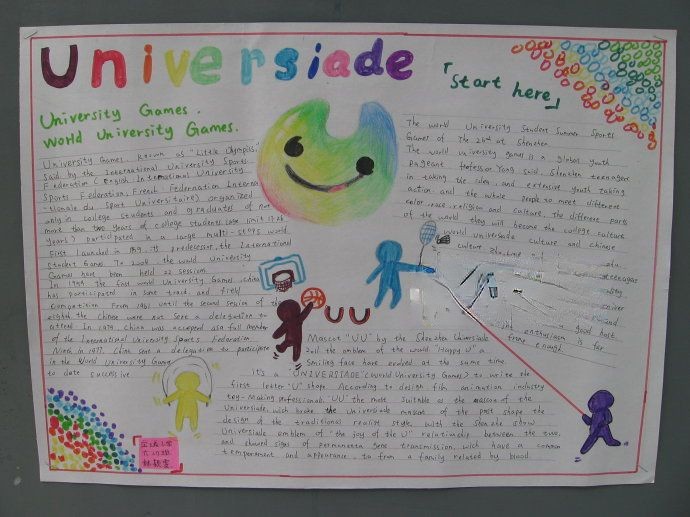 Universiade
「Start here」
University Games.
World University Games.
University Games, known as "Little Olympics,"
Said by the International University Sports
Federation (English International University
Sports Federation, French Federnation Interna
-tionale du Sport Universitaire) organized
only in college students and graduates of not
more than two years of college students (age limit 17-28
years) participated in a large multi-sports world.
First launched in 1959, its predecessor, the International
Student Games. To 2008, the world University
Games have been held 22 session.
In 1959, the first world University Games, China
has participated in some track and field
competition. From 1961 until the second session of the
eighth the Chinese were not sent a delegation to
attend. In 1975, China was accepted as a full member
of the International University Sports Federation
Ninth in 1977, China sent a delegation to participate
in the World University Games
to date successive.
The world University Student Summer Sports
Games of The 26th at Shenzhen
The world university games is a global youth
pageant. Professor Yang said, Shenzhen teenagers
in taking the idea, and extensive youth taking
action and the whole people to meet different
color, race, religion and culture, the different parts
of the world they will become the college culture
world universiade culture and Chinese
culture
teenages
univer
and
a good host
the enthusiasm is far
from enough.
UU
Mascot "UU" by the Shenzhen Universiade
2011 the emblem of the world "Happy U" a
Smiling face have evolved at the same time,
it's a UNIVERSIADE (World University Games) to write the
first letter "U" shape. According to design, film, animation industry
toy-making professionals, "UU" the most suitable as the mascon of the
Universiade, wich broke the Universiade mascon of the past shape the
design of the traditional realist style, with the Shenzhen show
Universiade emblem of "the joy of the U" relationship between the two,
and shared signs of permanenta gene transmission, wich have a common
temperament and appearance, to from a family related by blood.
六(1)班